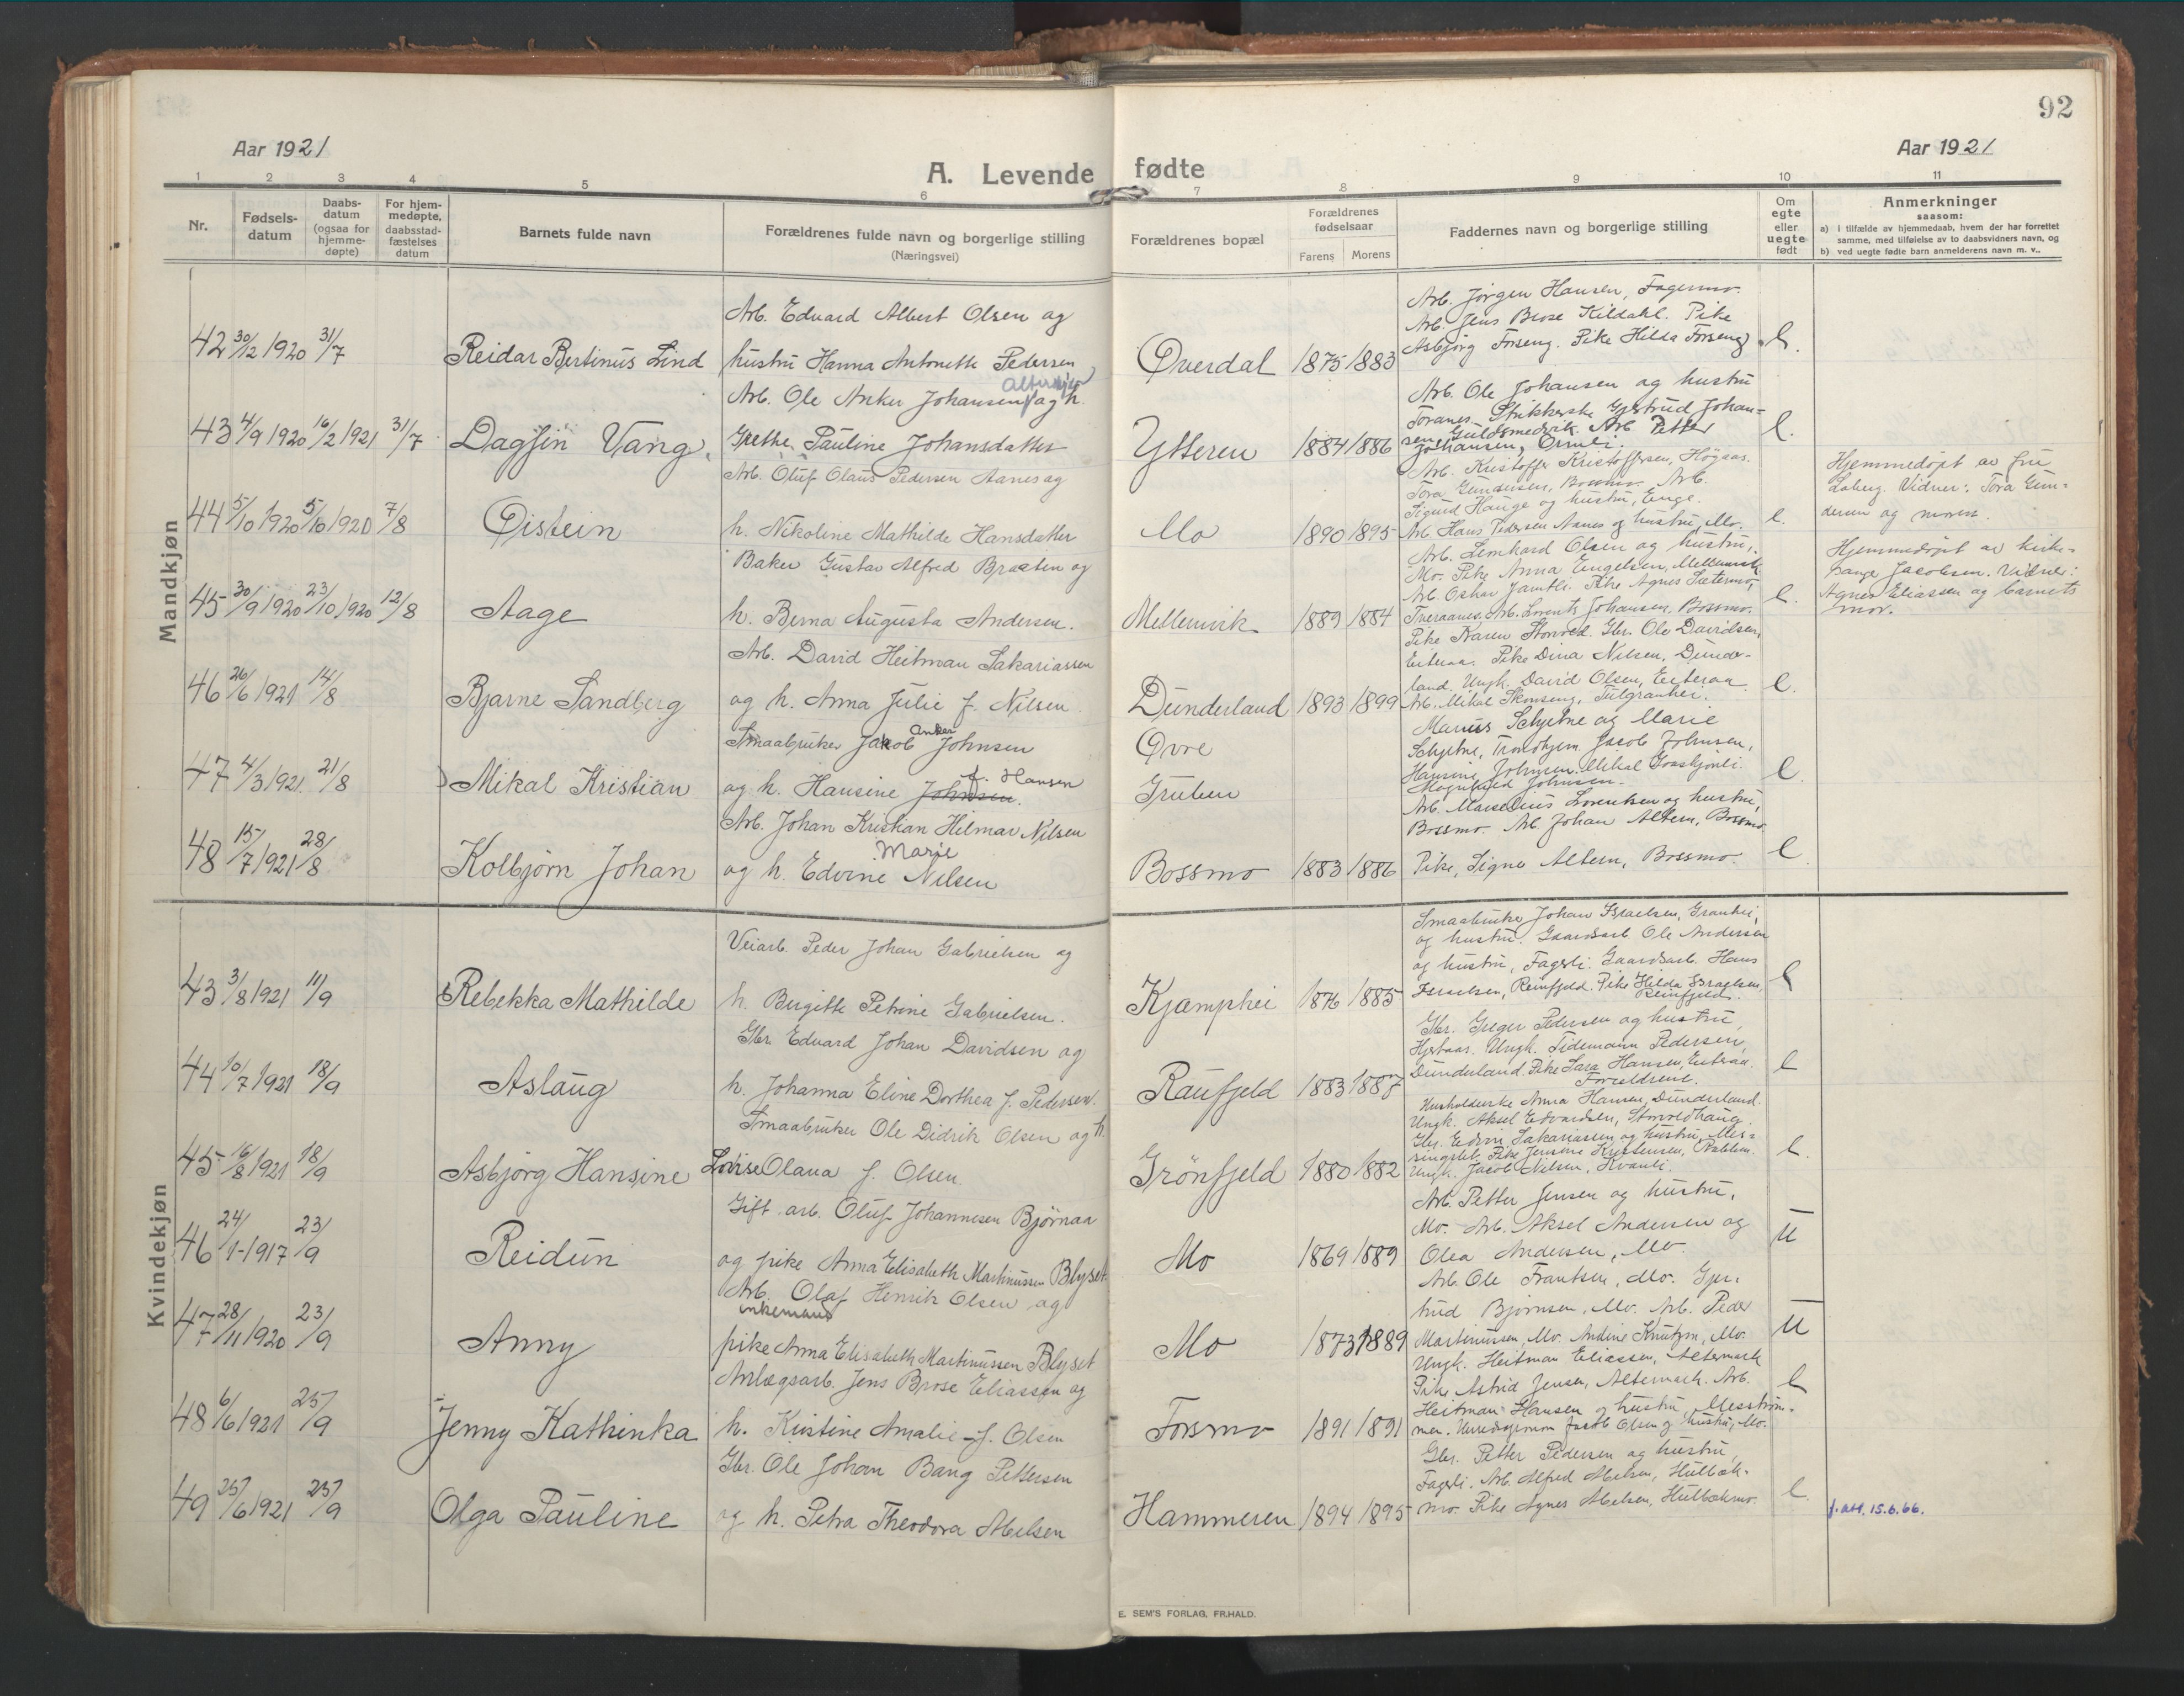 92
Aar 1921
Aar 1921
A. Levende fødte
1 2 3 4 5 6 7 8 9 10 11
Nr.
Fødsels-
datum
Daabs-
datum
(ogsaa for
hjemme-
døpte)
For hjem-
medøpte,
daabsstad-
fæstelses
datum
Barnets fulde navn
Forældrenes fulde navn og borgerlige stilling
(Næringsvei)
Forældrenes bopæl
Forældrenes
fødselsaar
Farens Morens
Faddernes navn og borgerlige stilling
Om
egte
eller
uegte
født
Anmerkninger
saasom:
a) i tilfælde av hjemmedaab, hvem der har forrettet
samme, med tilføielse av to daabsvidners navn, og
b) ved uegte fødte barn anmelderens navn m. v..
Mandkjøn
42 30/12 1920 31/7
Reidar Bertinus Lind
Arb. Eduard Albert Olsen og
hustru Hanna Antonette Pedersen
Øverdal 1875 1883
Arb. Jørgen Hansen, Fagermo.
Arb. Jens Brose Kildahl. Pike
Asbjørg Forseng. Pike Hilda Forseng
e.
43 4/9 1920 16/2 1921 31/7
Dagfin Vang.
Arb. Ole Anker Johansen og h.
Grethe Pauline Johansdatter
Ytteren 1884 1886
Arb. Ole Johansen og hustru
Toranes. Strikkerske Gjertrud Johan-
sen Guldsmedvik. Arb. Petter
Johansen,
e.
44 5/10 1920 5/10 1920 7/8
Øistein
Arb. Oluf Olaus Pedersen Aanes og
h. Nikoline Mathilde Hansdatter
Mo 1890 1895
Arb. Kristoffer Kristoffersen, Høgaas.
Tora Gundersen, Bossmo. Arb.
Sigurd Hauge og hustru, Enge.
Arb. Hans Pedersen Aanes og hustru, Mo.
e.
Hjemmedøpt av fru
Laberg. Vidner: Tora Gun-
dersen og moren.
45 30/9 1920 23/10 1920 12/8
Aage
Baker Gustav Alfred Braaten og
h. Berna Augusta Andersen.
Mellemvik 1889 1884
Arb. Lenhard Olsen og hustru,
Mo. Pike Anna Engelsen, Mellemvik
Arb. Oskar Jamtli. Pike Agnes Sætermo,
Tveraanes. Arb. Lorents Johansen, Bossmo.
e.
Hjemmedøpt av kirke-
sanger Jacobsen. Vidner:
Agnes Eliassen og barnets
mor.
46 26/6 1921 14/8
Bjarne Sandberg
Arb. David Heitman Sakariassen
og h. Anna Julie f. Nilsen.
Dunderland 1893 1899
Pike Karen Storvold. Gbr. Ole Davidsen,
Eiteraa. Pike Dina Nilsen, Dunder-
land. Ungk. David Olsen, Eiteraa.
Arb. Mikal Stenseng,
e.
47 4/3 1921 21/8
Mikal Kristian
Smaabruker Jakob Anker Johnsen
og h. Hansine Johnsen. f. Hansen
Øvre
Gruben
Marius Schjetne og Marie
Schjetne, Trondhjem. Jacob Johnsen,
Hansine Johnsen. Mikal
Magnhild Johnsen.
e.
48 15/7 1921 28/8
Kolbjørn Johan
Arb. Johan Kristian Hilmar Nilsen
og h. Edvine Marie Nilsen
Bossmo 1883 1886
Arb. Marselius Lorentsen og hustru,
Bossmo. Arb. Johan Altern, Bossmo.
Pike, Signe Altern, Bossmo.
e.
Kvindekjøn
43 3/8 1921 11/9
Rebekka Mathilde
Veiarb. Peder Johan Gabrielsen og
h. Birgitte Petrine Gabrielsen.
Kjæmphei 1876 1885
Smaabruker Johan Israelsen, Granhei,
og hustru. Gaardsarb. Ole Andersen
og hustru, Fagerli. Gaardsarb. Hans
Israelsen, Reinfjeld. Pike Hilda Israelsen,
Reinfjeld.
e
44 10/7 1921 18/9
Aslaug
Gbr. Eduard Johan Davidsen og
h. Johanna Eline Dorthea f. Pedersen.
Raufjeld 1883 1887
Gbr. Greger Pedersen og hustru,
Hjertaas. Ungk. Tidemann Pedersen,
Dunderland. Pike Sara Hansen, Eiteraa.
Forældrene.
e
45 16/8 1921 18/9
Asbjørg Hansine
Smaabruker Ole Didrik Olsen og h.
Lovise Olava f. Olsen.
Grønfjeld 1880 1882
Husholderske Anna Hansen, Dunderland.
Ungk. Aksel Edvardsen, Storvoldhaug.
Gbr. Edvin Sakariassen og hustru, Mes-
singslet. Pike Jensine Kristensen,
Ungk. Jacob Nilsen, Kvanli.
e.
46 24/1-1917 23/9
Reidun
Gift arb. Oluf Johannesen Bjørnaa
og pike Anna Elisabeth Martinussen Blyset
Mo 1869 1889
Arb. Petter Jensen og hustru,
Mo. Arb. Aksel Andersen og
Olea Andersen, Mo.
U
47 28/11 1920 23/9
Anny
Arb. Olaf Henrik Olsen og
enkemand
pike Anna Elisabeth Martinussen Blyset
Mo 1873 1889
Arb. Ole Frantsen, Mo. Gjer-
trud Bjørnsen, Mo. Arb. Peder
Martinussen, Mo. Andine Knutsen, Mo.
U
48 6/6 1921 25/9
Jenny Kathinka
Anlægsarb. Jens Brose Eliassen og
h. Kristine Amalie f. Olsen
Forsmo 1891 1891
Ungk. Heitman Eliassen, Altermark
Pike Astrid Jensen, Altermark. Arb.
Heitman Hansen og hustru, Messtrøm-
men. Jacob Olsen og hustru, Mo.
e
49 25/6 1921 25/9
Olga Pauline
Gbr. Ole Johan Bang Pettersen
og h. Petra Theodora Abelsen
Hammeren 1894 1895
Gbr. Petter Pedersen og hustru,
Fagerli. Arb. Alfred Abelsen, Hulbæk-
mo. Pike Agnes Abelsen, Hulbækmo.
e.
f.att. 15.6.66.
E. SEM'S FORLAG, FR.HALD.